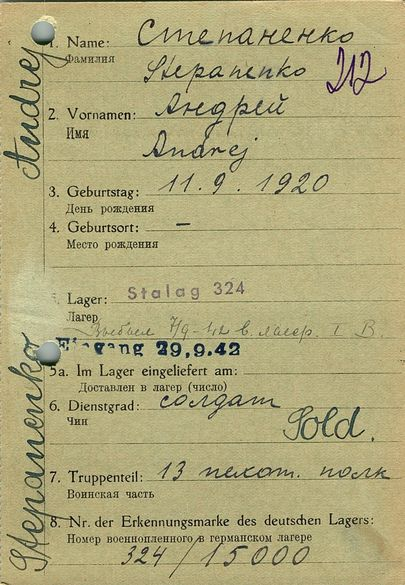 Andrej
Stepanenko
1. Name: Степаненко
Фамилия
Stepanenko
212
2. Vornamen: Андрей
Имя
Andrej
3. Geburtstag: 11. 9. 1920
День рождения
4. Geburtsort: –
Место рождения
5. Lager: Stalag 324
Лагер
Выбыл 7/9-42 в лагер. I B.
Eingang 29.9.42
5a. Im Lager eingeliefert am:
Доставлен в лагер (число)
6. Dienstgrad: солдат
Чин
Sold.
7. Truppenteil: 13 пехот. полк
Воинская часть
8. Nr. der Erkennungsmarke des deutschen Lagers:
Номер военнопленного в германском лагере
324/15000